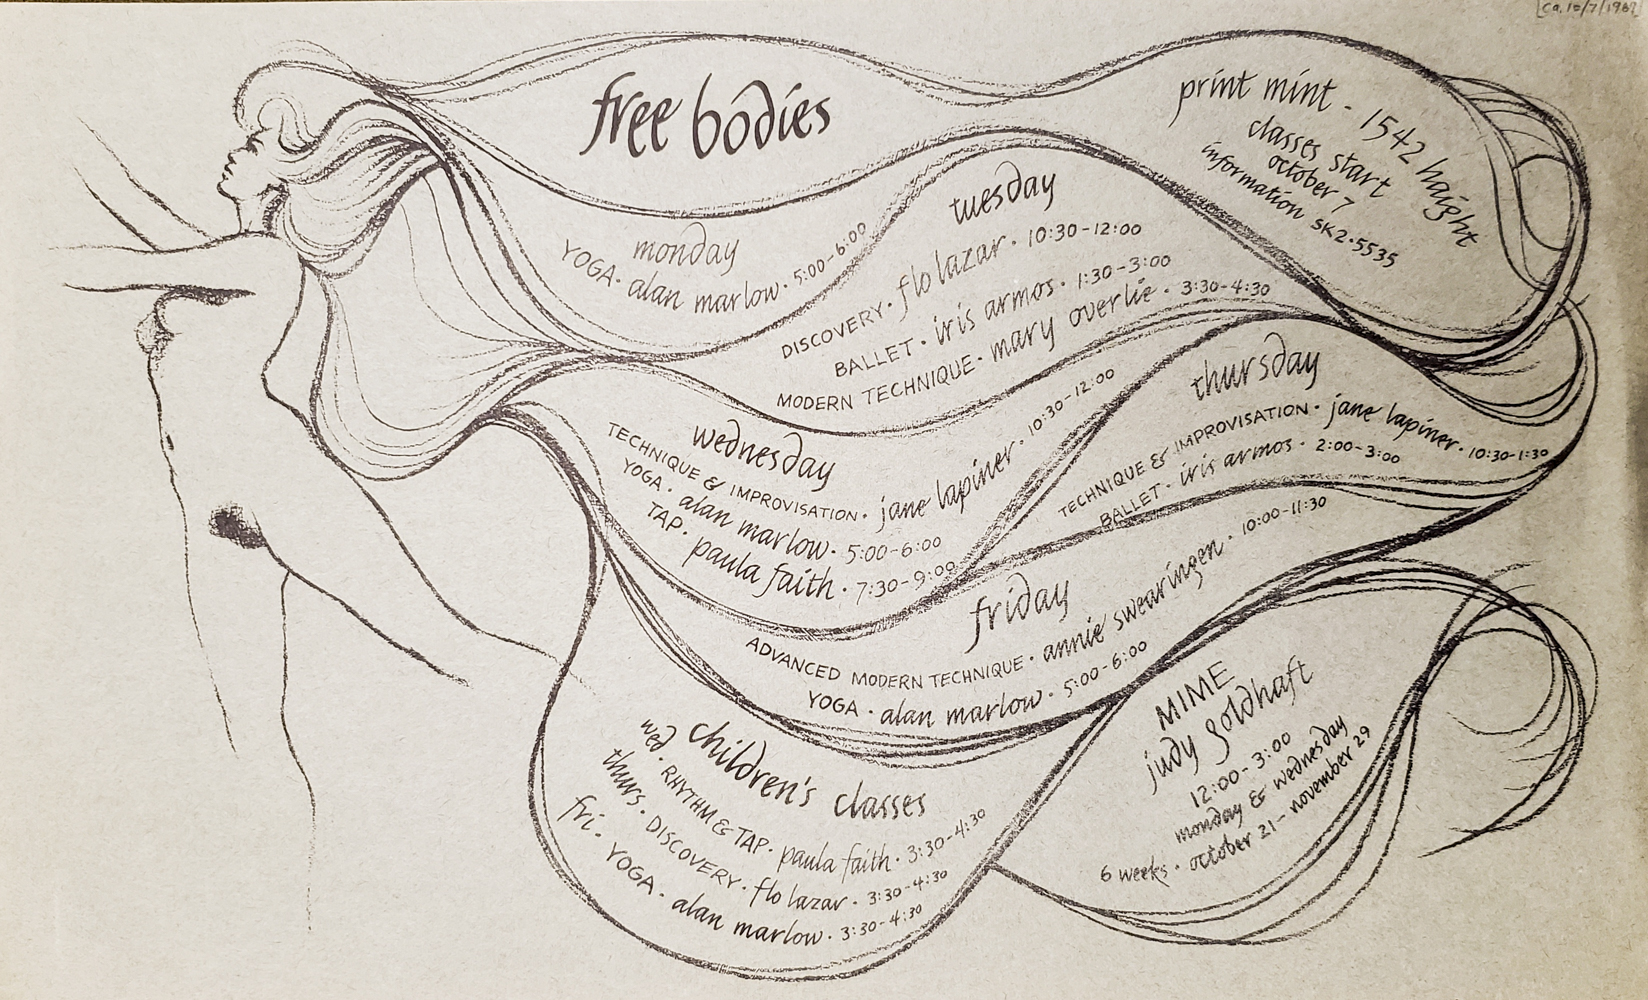 [ca. 10/7/1969]
free bodies
print mint - 1542 haight
classes start
october 7
information SK2·5535
monday
YOGA · alan marlow · 5:00-6:00
tuesday
DISCOVERY · flo lazar · 10:30-12:00
BALLET · iris armos · 1:30-3:00
MODERN TECHNIQUE · mary overlie · 3:30-4:30
wednesday
TECHNIQUE & IMPROVISATION · jane lapiner · 10:30-12:00
YOGA · alan marlow · 5:00-6:00
TAP · paula faith · 7:30-9:00
thursday
TECHNIQUE & IMPROVISATION · jane lapiner · 10:30-1:30
BALLET · iris armos · 2:00-3:00
friday
ADVANCED MODERN TECHNIQUE · annie swearingen · 10:00-11:30
YOGA · alan marlow · 5:00-6:00
children's classes
wed · RHYTHM & TAP · paula faith · 3:30-4:30
thurs · DISCOVERY · flo lazar · 3:30-4:30
fri · YOGA · alan marlow · 3:30-4:30
MIME
judy goldhaft
12:00-3:00
monday & wednesday
6 weeks · october 21 - november 29